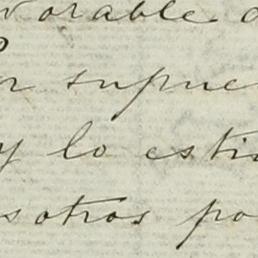 vorable d
r supue
y lo esti
sotros po